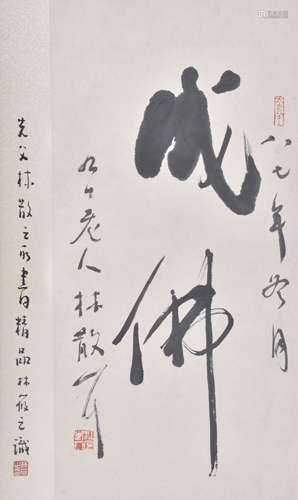 成佛
八七年冬月
九十老人林散耳
先父林散之所書精品林筱之識